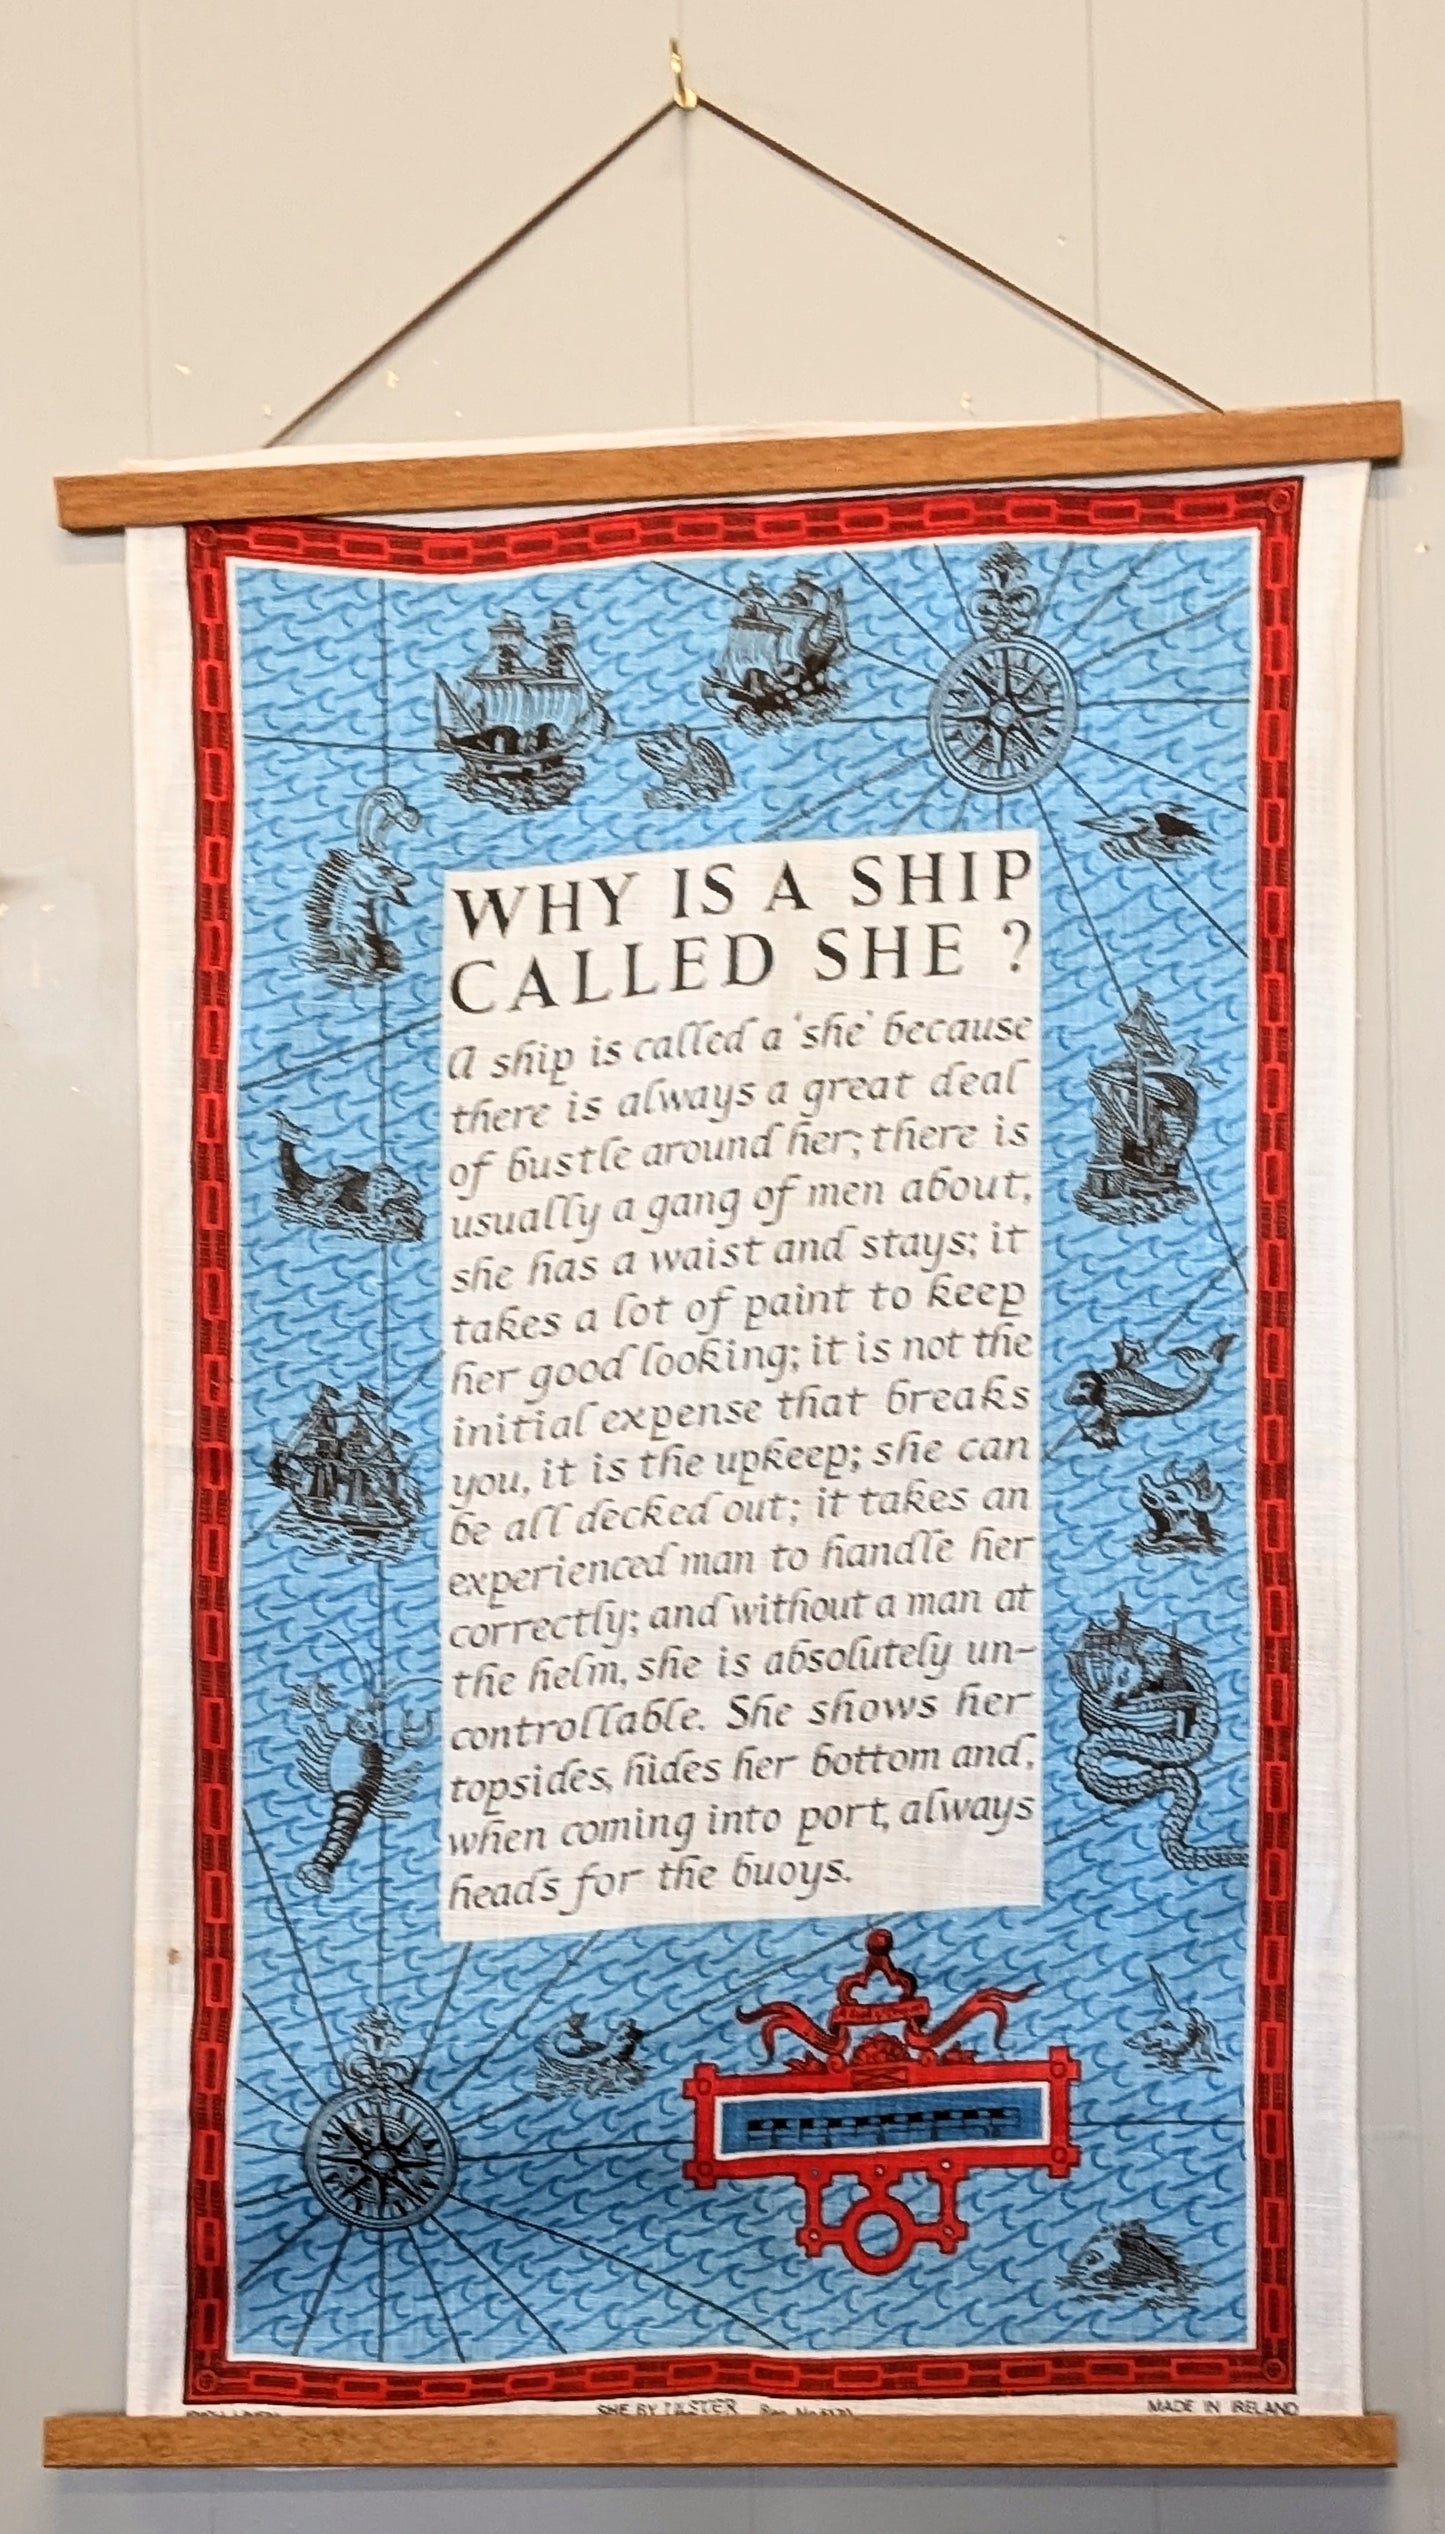 WHY IS A SHIP
CALLED SHE ?
A ship is called a 'she' because
there is always a great deal
of bustle around her; there is
usually a gang of men about,
she has a waist and stays; it
takes a lot of paint to keep
her good looking; it is not the
initial expense that breaks
you, it is the upkeep; she can
be all decked out; it takes an
experienced man to handle her
correctly; and without a man at
the helm, she is absolutely un-
controllable. She shows her
topsides, hides her bottom and,
when coming into port, always
heads for the buoys.
SHE BY ULSTER
MADE IN IRELAND